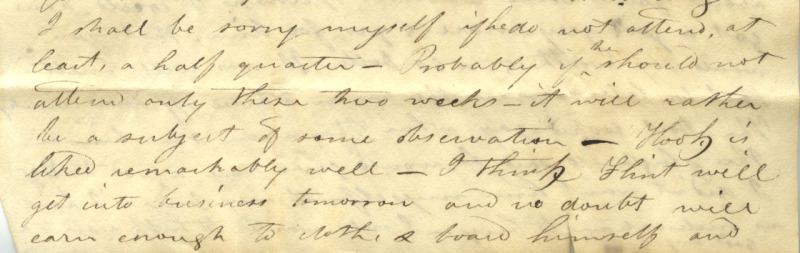 I shall be sorry myself if he do not attend, at
least, a half quarter — Probably if he should not
attend only these two weeks — it will rather
be a subject of some observation — Hook is
liked remarkably well — I think Flint will
get into business tomorrow and no doubt will
earn enough to clothe & board himself and